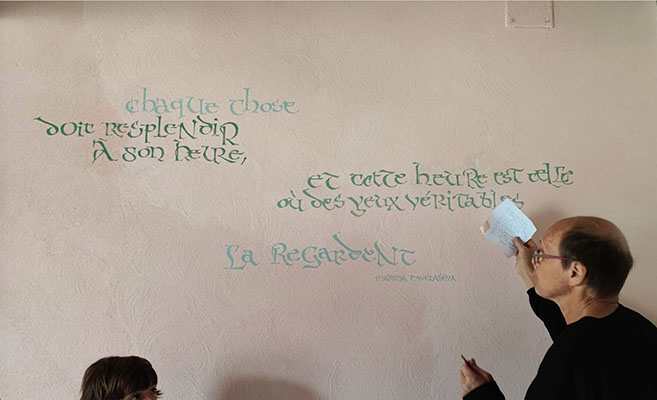 Chaque chose
doit resplendir
à son heure,
et cette heure est celle
où des yeux véritables
la regardent
Marina Tsvétaïéva